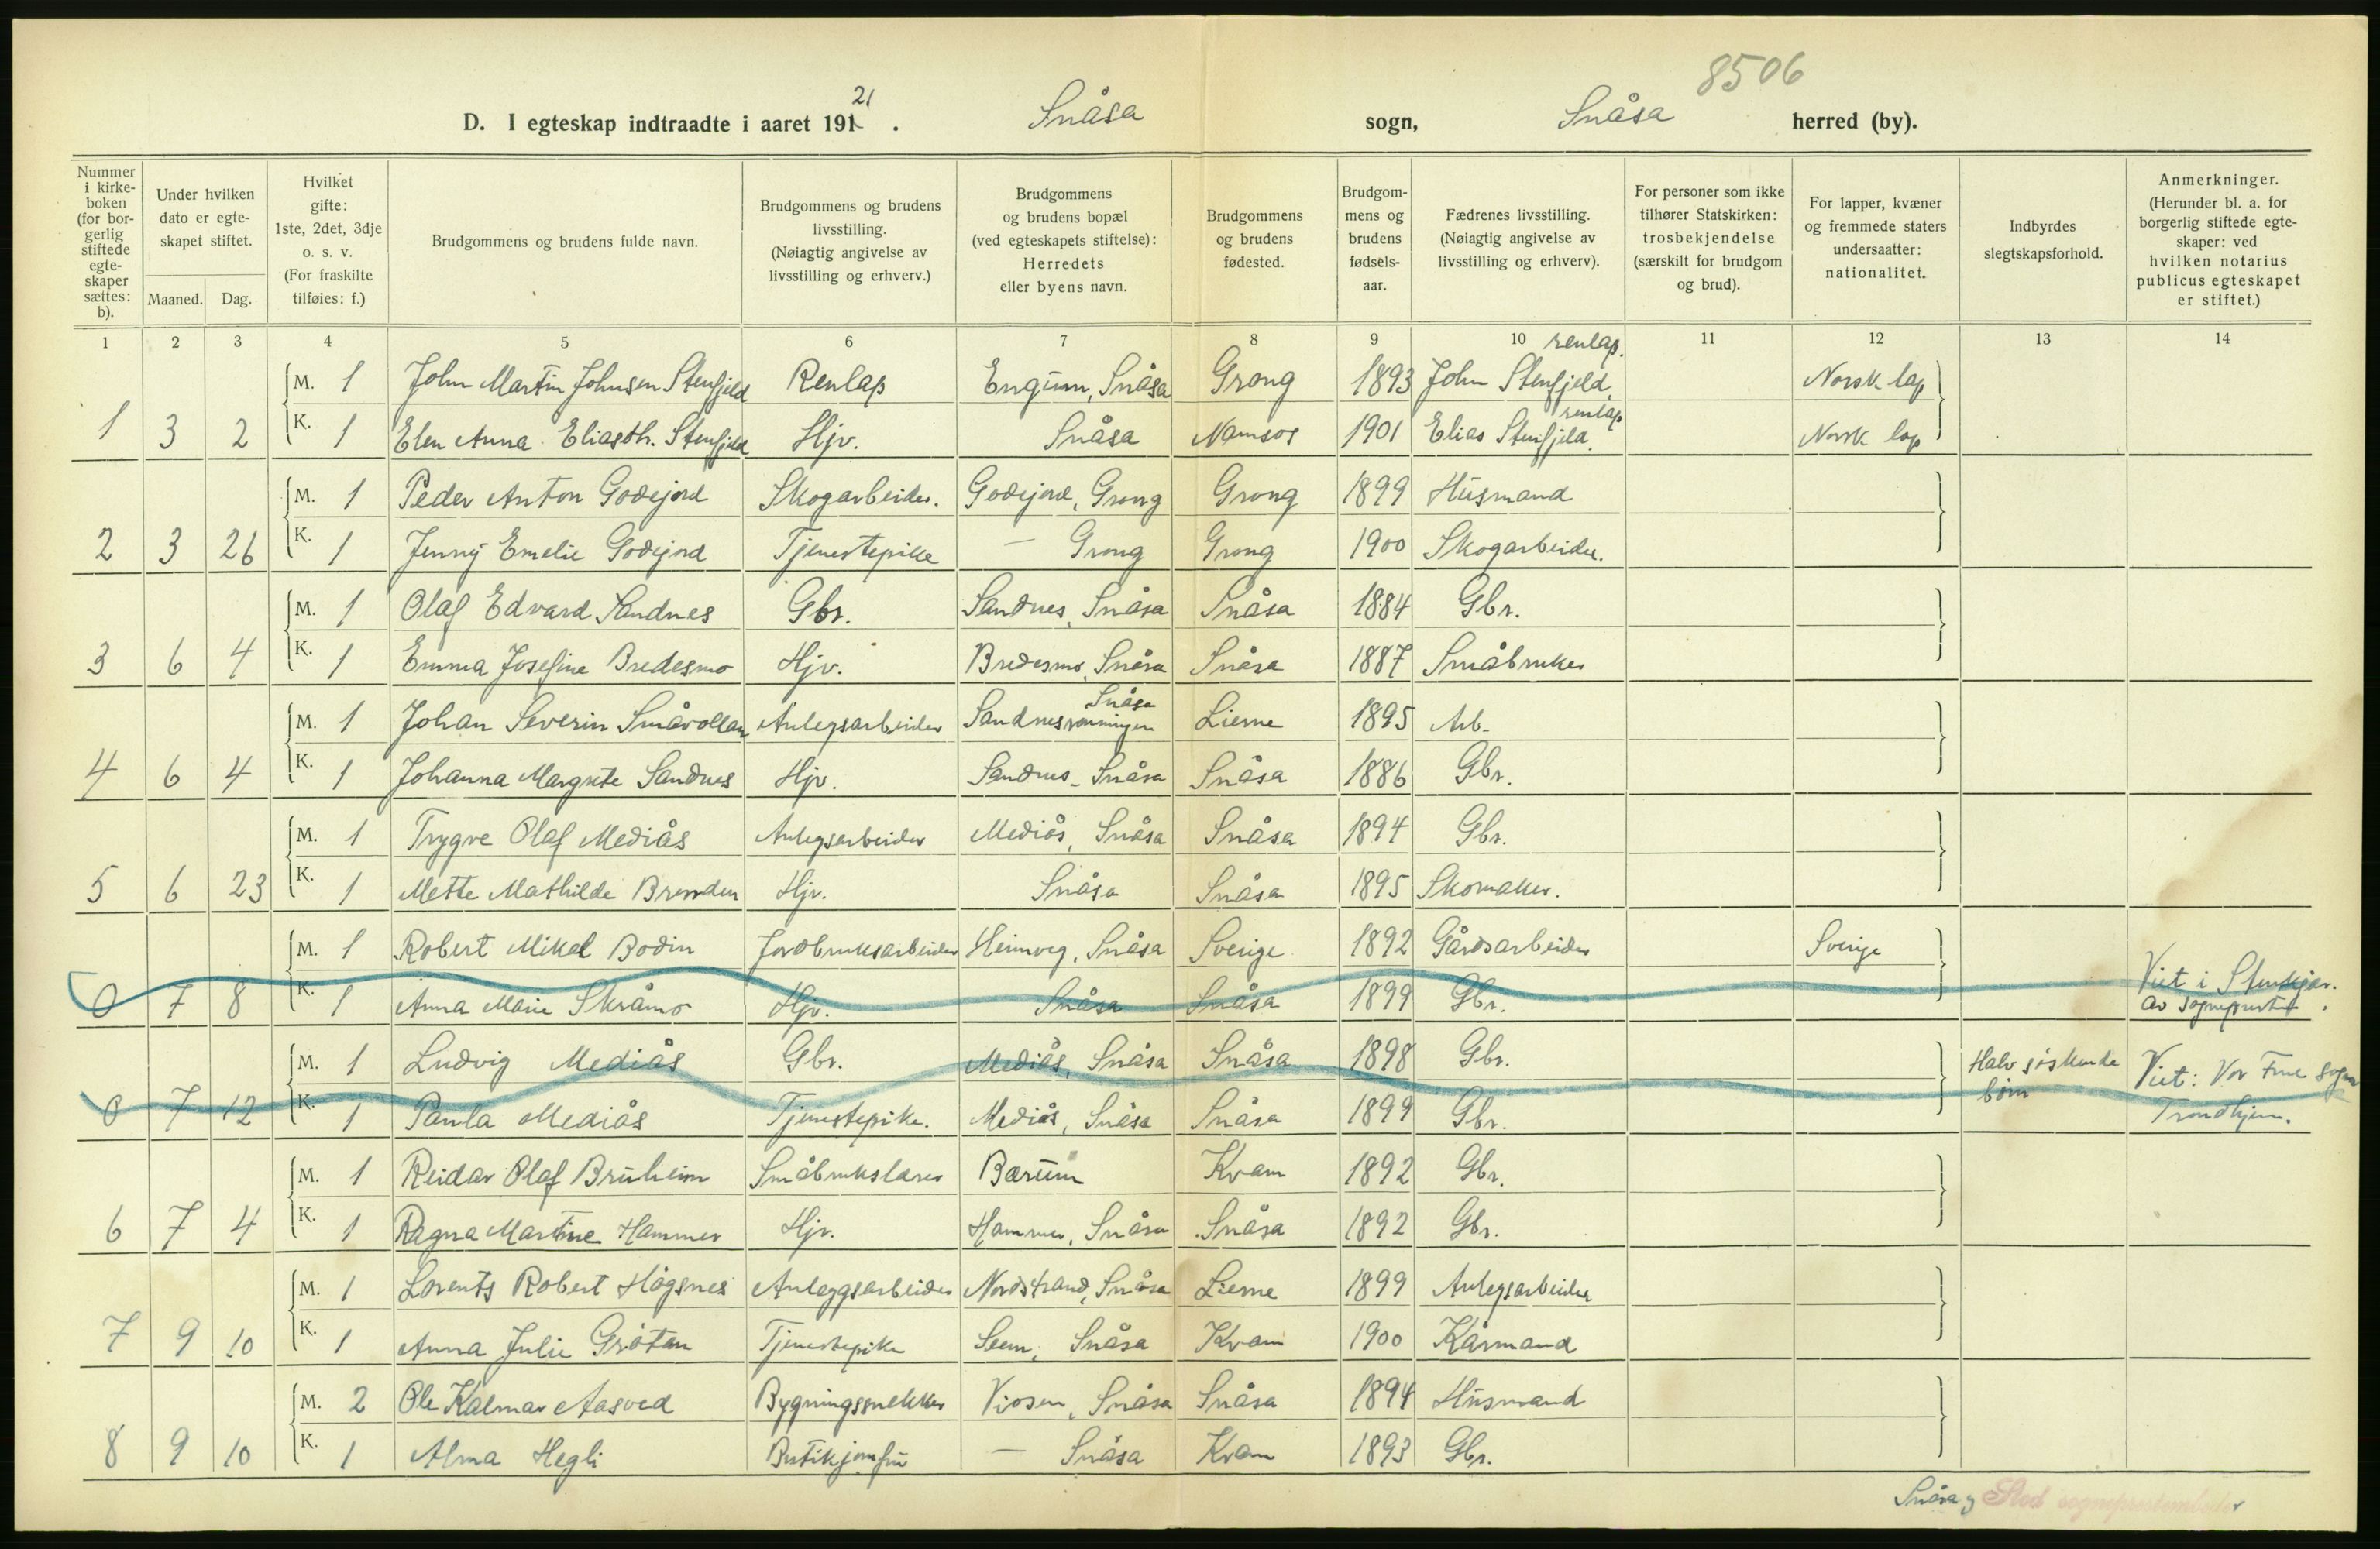 8506
D. I egteskap indtraadte i aaret 191 21 . Snåsa sogn, Snåsa herred (by).
Nummer i kirke- boken (for bor- gerlig stiftede egte- skaper sættes: b).
Under hvilken dato er egte- skapet stiftet.
Maaned. Dag.
Hvilket gifte: 1ste, 2det, 3dje o. s. v. (For fraskilte tilføies: f.)
Brudgommens og brudens fulde navn.
Brudgommens og brudens livsstilling. (Nøiagtig angivelse av livsstilling og erhverv.)
Brudgommens og brudens bopæl (ved egteskapets stiftelse): Herredets eller byens navn.
Brudgommens og brudens fødested.
Brudgom- mens og brudens fødsels- aar.
Fædrenes livsstilling. (Nøiagtig angivelse av livsstilling og erhverv).
For personer som ikke tilhører Statskirken: trosbekjendelse (særskilt for brudgom og brud).
For lapper, kvæner og fremmede staters undersaatter: nationalitet.
Indbyrdes slegtskapsforhold.
Anmerkninger. (Herunder bl. a. for borgerlig stiftede egte- skaper: ved hvilken notarius publicus egteskapet er stiftet.)
1 2 3 4 5 6 7 8 9 10 11 12 13 14
renlap.
M. 1 John Martin Johnsen Stenfjeld Renlap Engum, Snåsa Grong 1893 John Stenfjeld, Norsk lap
renlap
1 3 2 K. 1 Elen Anna Eliasdtr. Stenfjeld Hjv. Snåsa Namsos 1901 Elias Stenfjeld. Norsk lap
M. 1 Peder Anton Godejord Skogarbeider. Godejord, Grong Grong 1899 Husmand
2 3 26 K. 1 Jenny Emelie Godejord Tjenestepike — Grong Grong 1900 Skogarbeider.
M. 1 Olaf Edvard Sandnes Gbr. Sandnes, Snåsa Snåsa 1884 Gbr.
3 6 4 K. 1 Emma Josefine Bredesmo Hjv. Bredesmo, Snåsa Snåsa 1887 Småbruker
Snåsa
M. 1 Johan Severin Småvollan Anlegsarbeider Sandnesrønningen Lierne 1895 Arb.
4 6 4 K. 1 Johanna Margrete Sandnes Hjv. Sandnes - Snåsa Snåsa 1886 Gbr.
M. 1 Trygve Olaf Mediås Anlegsarbeider Mediås, Snåsa Snåsa 1894 Gbr.
5 6 23 K. 1 Mette Mathilde Hjv. Snåsa Snåsa 1895 Skomaker.
M. 1 Robert Mikal Bodin Jordbruksarbeider Heimveg, Snåsa Sverige 1892 Gårdsarbeider Sverige
0 7 8 K. 1 Anna Marie Skråmo Hjv. Snåsa Snåsa 1899 Gbr. Viet i Stenkjær. av sogneprest
M. 1 Ludvig Mediås Gbr. Mediås, Snåsa Snåsa 1898 Gbr. Halv søskende Viet: Vor Frue sogn
0 7 12 K. 1 Paula Mediås Tjenestepike. Mediås, Snåsa Snåsa 1899 Gbr. børn Trondhjem.
M. 1 Reidar Olaf Bruheim Småbrukslærer Bærum Kvam 1892 Gbr.
6 7 4 K. 1 Ragna Martine Hammer Hjv. Hammer, Snåsa Snåsa 1892 Gbr.
M. 1 Lorents Robert Høgsnes Anleggsarbeider Nordstrand, Snåsa Lierne 1899 Anlegsarbeider
7 9 10 K. 1 Anna Julie Grøtan Tjenestepike Seem, Snåsa Kvam 1900 Kårmand
M. 2 Ole Kalmar Aasved Bygningssnekker Viosen, Snåsa Snåsa 1894 Husmand
8 9 10 K. 1 Alma Hegli Butikjomfru — Snåsa Kvam 1893 Gbr.
Snåsa og Stod sogneprestembeder